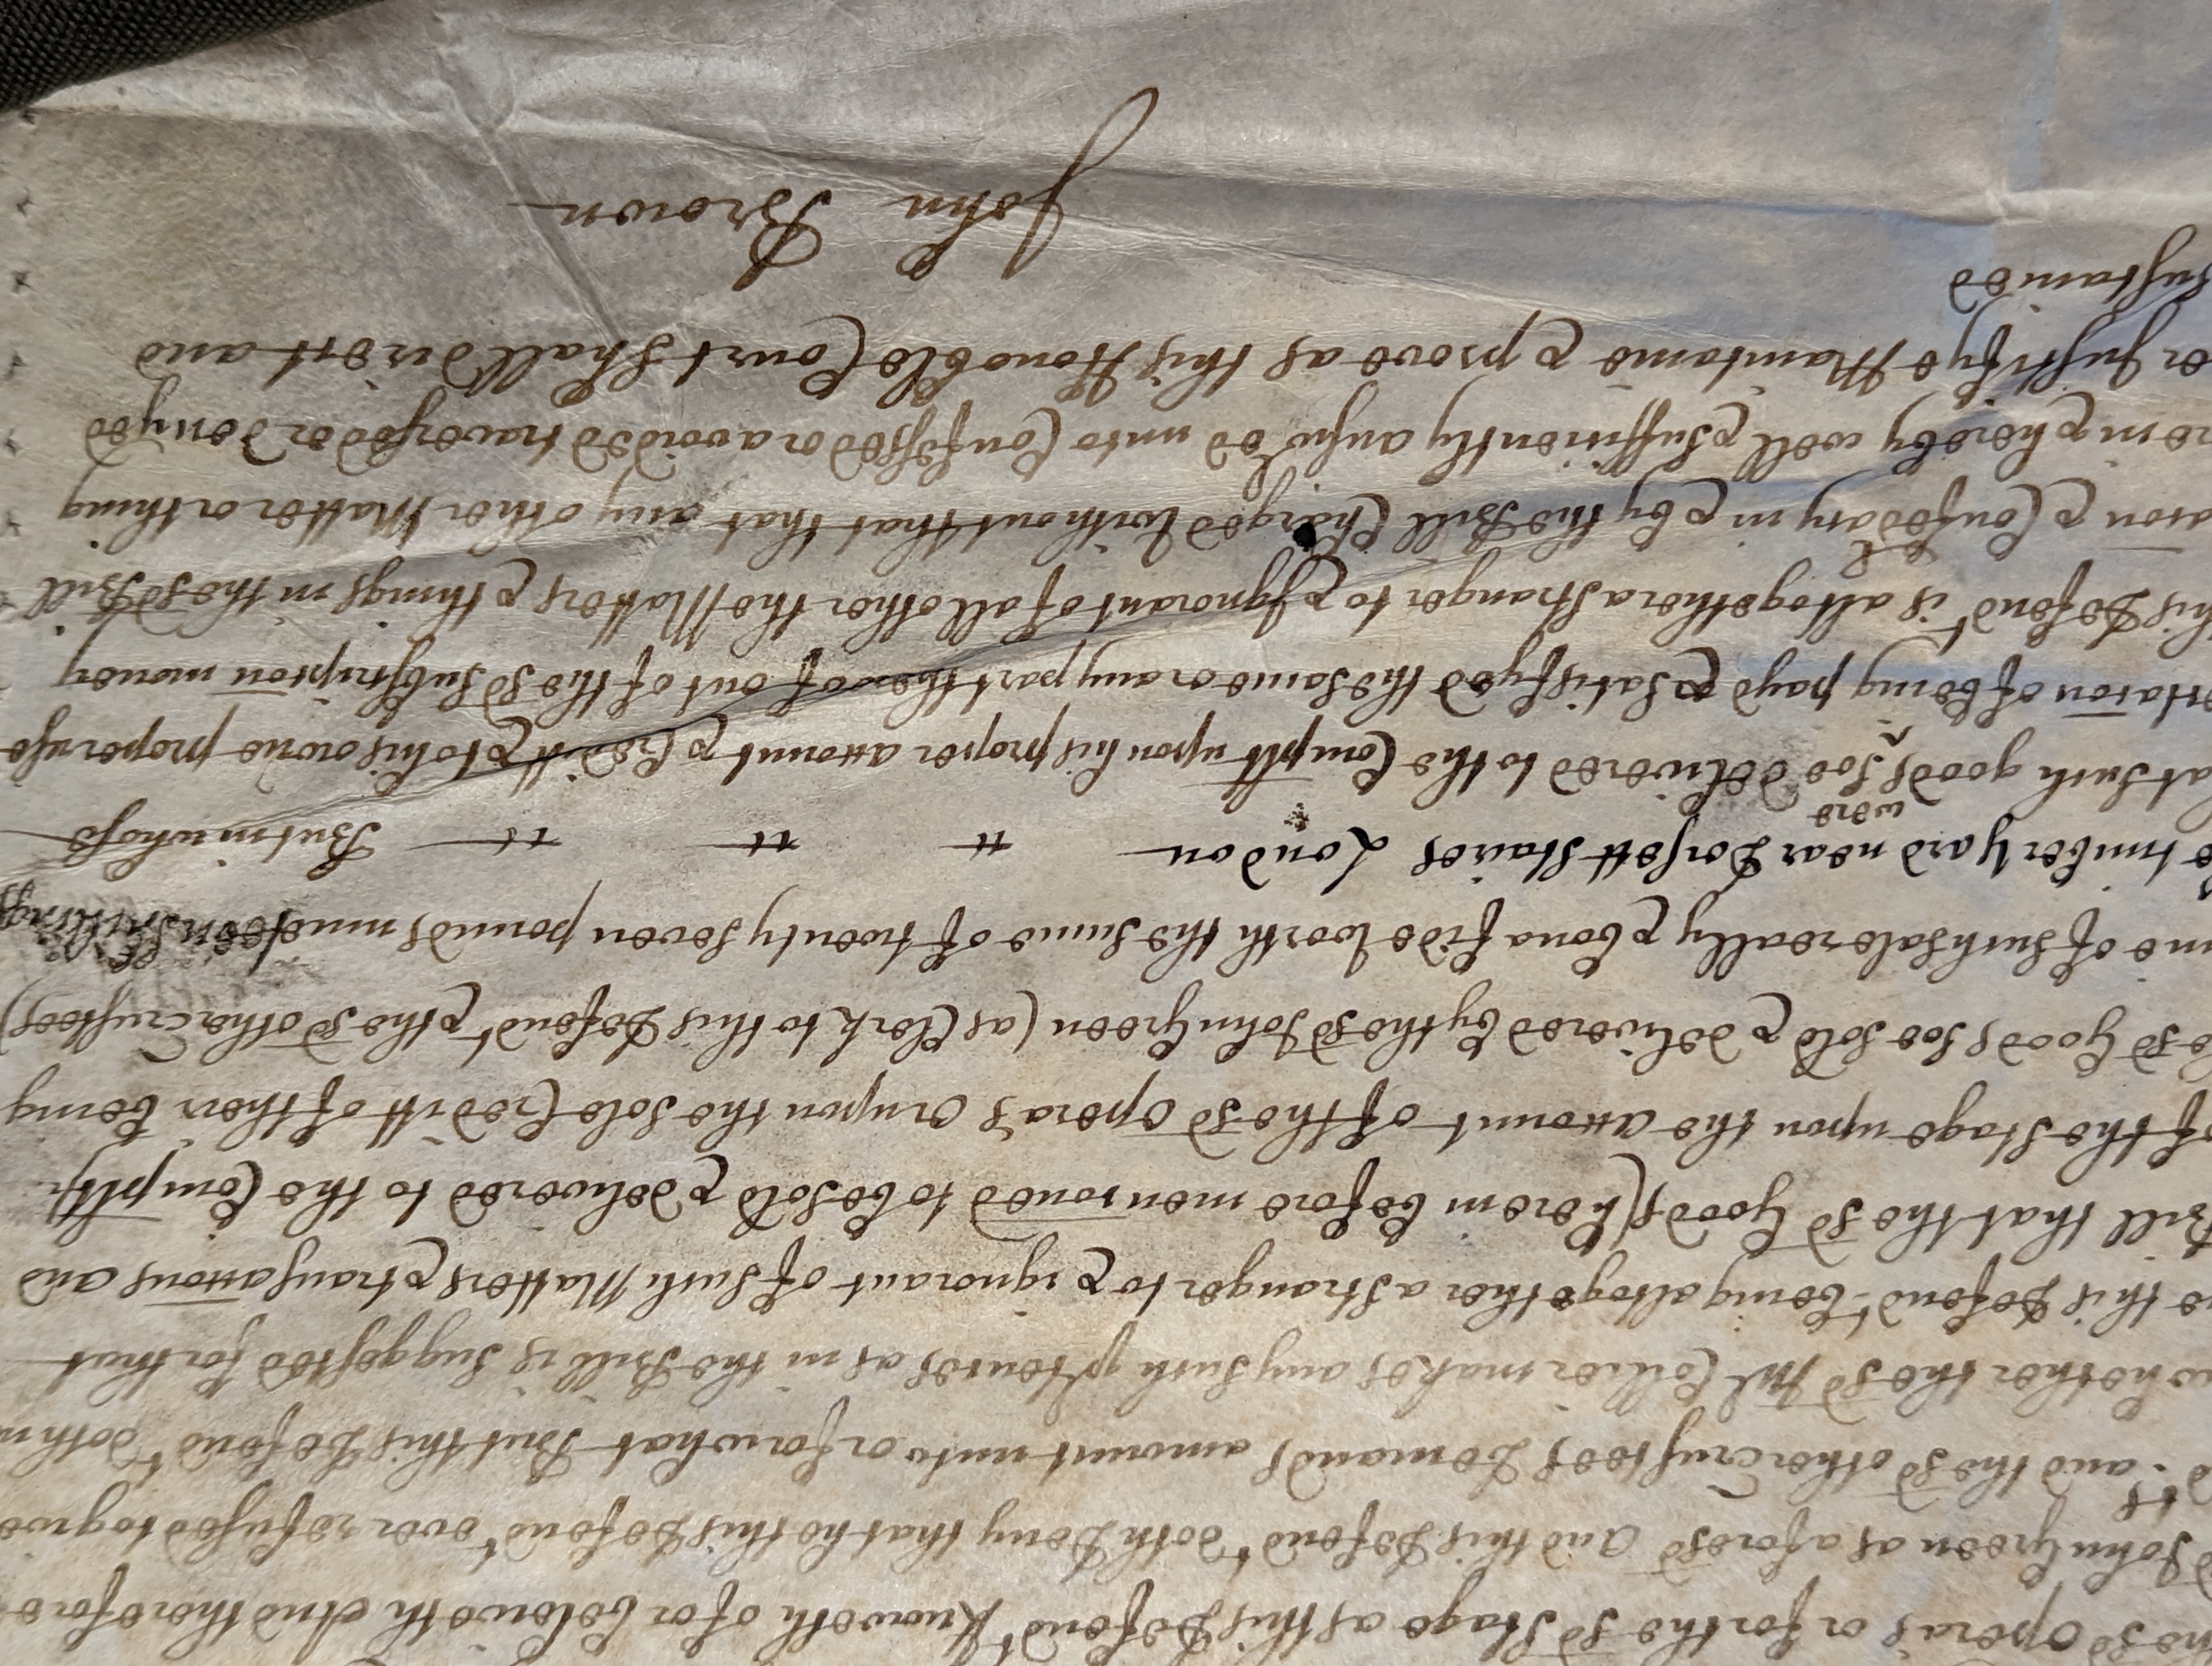 he sd Opera's or for the sd Stage as this Defendt Knoweth of or beleiveth And therefore
d John Green as aforesd And this Defendt doth Deny that he this Defendt ever refused to give
and the sd other Trustees Demands amount unto or for what But this Defendt doth
whether the sd Collier makes any such ptences as in the Bill is suggested for that
this Defendt being altogether a Stranger to & ignorant of such Matters & transaccons and
Bill that the sd Goods (herein before mencioned to be sold & delivered to the Complt
of the Stage upon the account of the sd Opera's Or upon the sole Creditt of their being
sd Goods soe sold & delivered by the sd John Green (as Clerk to this Defendt & the sd other Trustees)
me of such sale really & bona fide worth the summe of twenty seven pounds nineteen shillings
timber yard near Dorsett Staires London But in whose
were
at such goods soe delivered to the Complt upon his proper account & Creditt & to his owne proper use
of being payd & satisfyed the same or any part thereof out of the sd Subscripcon money
his Defendt is altogether a Stranger to & Ignorant of all other the Matters & things in the sd Bill
& Confederacy in & by the Bill Charged Without that that any other Matter or thing
rein & hereby well & sufficiently answered unto Confessed or avoided traversed or denyed
er Justifye Maintaine & prove as this Honoble Court Shall direct and
sustained
John Brown